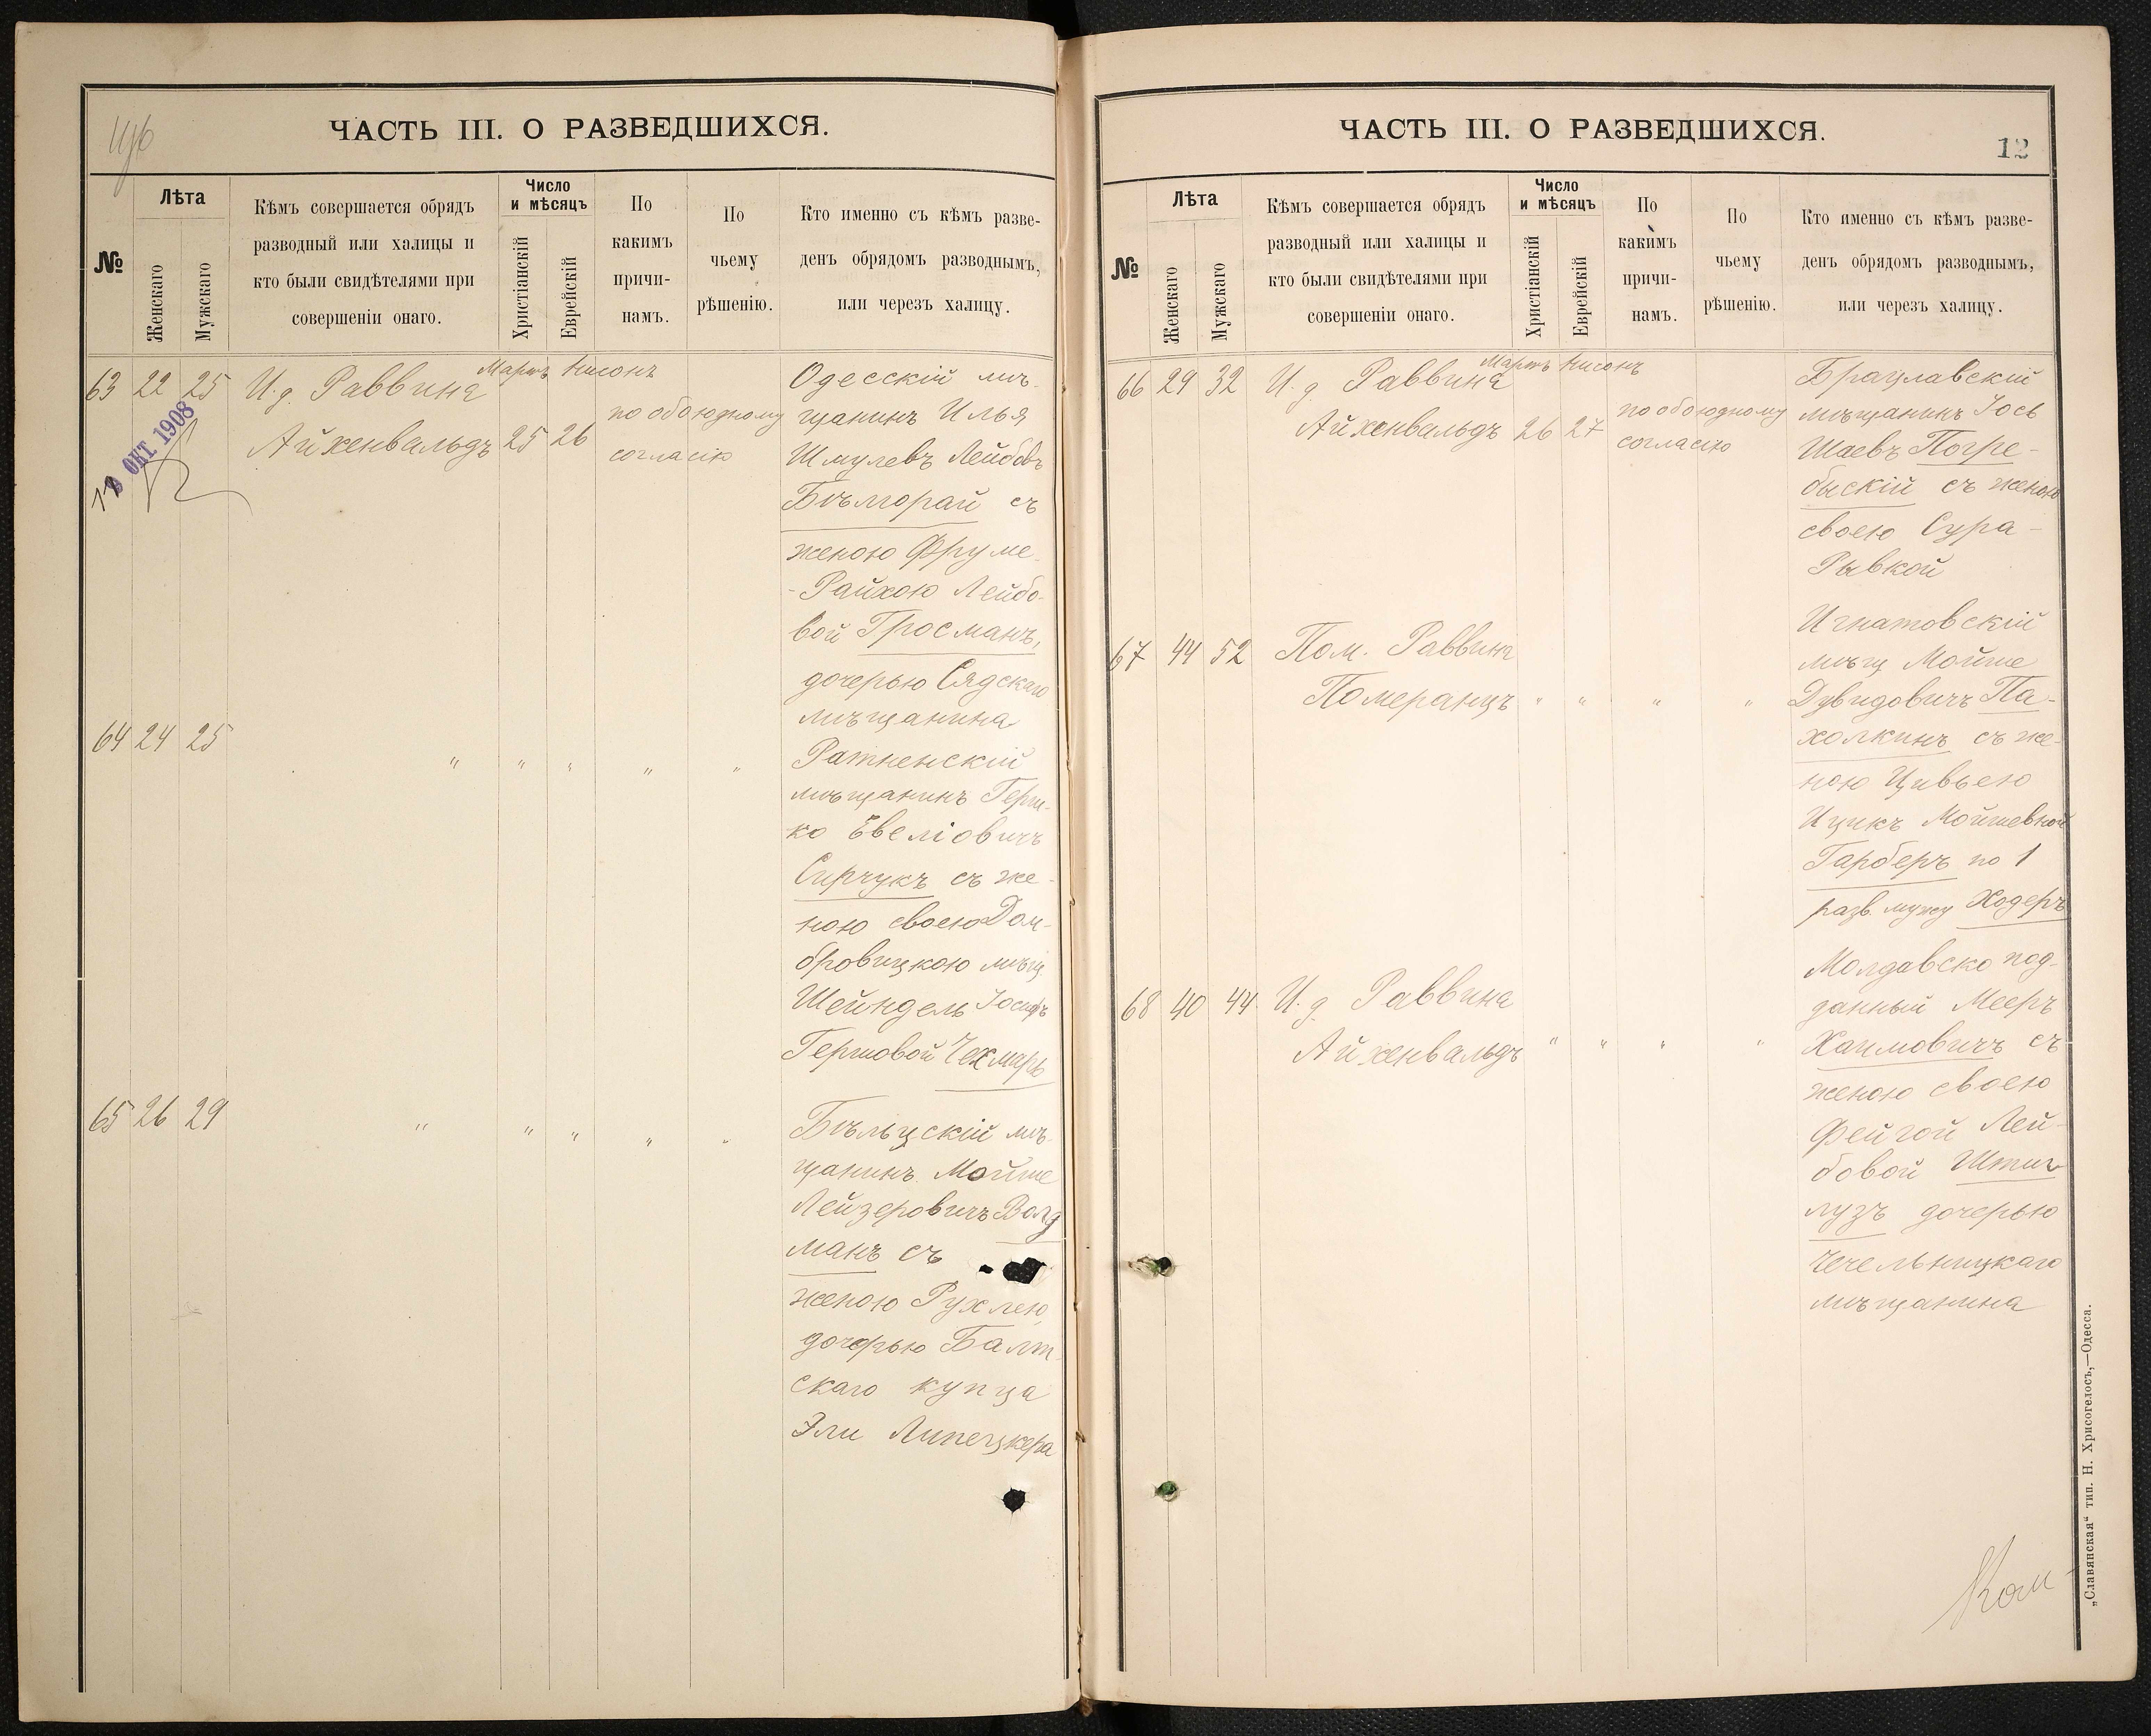 ЧАСТЬ III. О РАЗВЕДШИХСЯ.
№
Лѣта
Женскаго
Мужскаго
Кѣмъ совершается обрядъ
разводный или халицы и
кто были свидѣтелями при
совершеніи онаго.
Число
и мѣсяцъ
Христіанскій
Еврейскій
По
какимъ
причи-
намъ.
По
чьему
рѣшенію.
Кто именно съ кѣмъ разве-
денъ обрядомъ разводнымъ,
или черезъ халицу.
63 22 25 И. д. Раввина
Айхенвальдъ
Мартъ Нисонъ
25 26
по обоюдному
согласію
ОКТ 1908
Одесскій мѣ-
щанинъ Илья
Шмулевъ Лейбовъ
Бѣлгорай съ
женою Фруме-
-Райхою Лейбо-
вой Гросманъ,
дочерью Сядскаго
мѣщанина
64 24 25 " " " " "
Ратненскій
мѣщанинъ Герш-
ко Евеліовичъ
Сирчукъ съ же-
ною своею Дом-
бровицкою мѣщ.
Шейндель Іосифъ
Гершовой Чехмаръ
65 26 29 " " " " "
Бѣльцскій мѣ-
щанинъ Мойше
Лейзеровичъ Волд
манъ съ
женою Рухлею,
дочерью Балт
скаго купца
Эли Липецкера
ЧАСТЬ III. О РАЗВЕДШИХСЯ.
12
№
Лѣта
Женскаго
Мужскаго
Кѣмъ совершается обрядъ
разводный или халицы и
кто были свидѣтелями при
совершеніи онаго.
Число
и мѣсяцъ
Христіанскій
Еврейскій
По
какимъ
причи-
намъ.
По
чьему
рѣшенію.
Кто именно съ кѣмъ разве-
денъ обрядомъ разводнымъ,
или черезъ халицу.
66 29 32 И. д. Раввина
Айхенвальдъ
Мартъ Нисонъ
26 27
по обоюдному
согласію
Брацлавскій
мѣщанинъ Іось
Шаевъ Погре-
быскій съ женою
своею Сура-
Рывкой
67 44 52 Пом. Раввина
Померанцъ " " " "
Игнатовскій
мѣщ Мойше
Дувидовичъ Па-
холкинъ съ же-
ною Цивьею
Ицикъ Мойшевной
Гарберъ по 1
разв. мужу Ходеръ
68 40 44 И. д. Раввина
Айхенвальдъ " " " "
Молдавско под-
данный Мееръ
Хаимовичъ съ
женою своею
Фейгой Лей-
бовой Штиг
лузъ дочерью
Чечельницкаго
мѣщанина
„Славянская“ тип. Н. Хрисогелосъ,—Одесса.